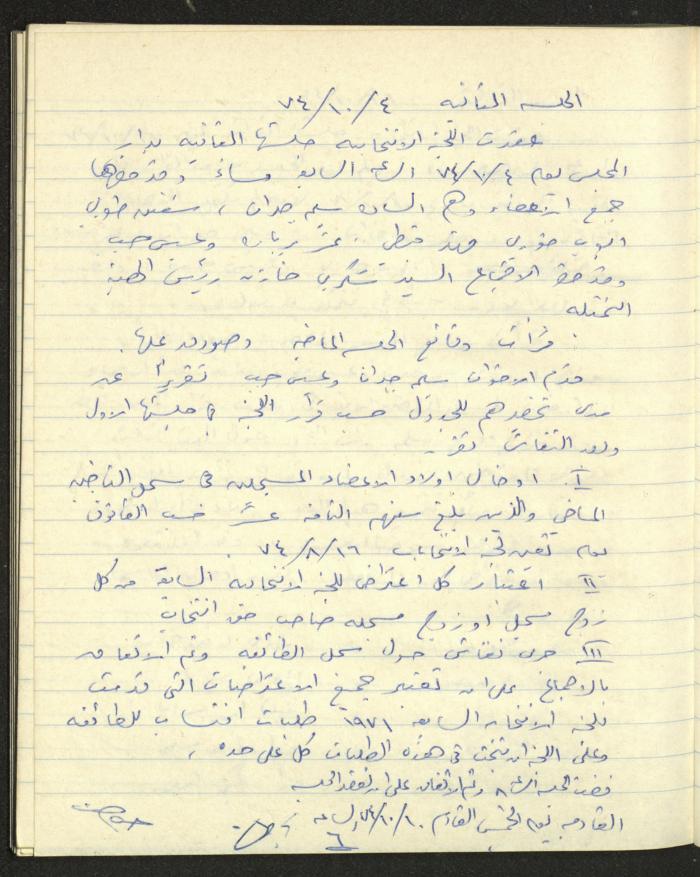 الجلسه الثانيه ٧٤/١٠/٤
عقدت اللجنة الانتخابيه جلستها الثانيه بدار
المجلس يوم ٧٤/١٠/٤ الساعة السابعة مساءً وقد حضرها
جميع الاعضاء وهم الساده سليم جدان ،
خوري وعيسى حبيب
وقد حضر الاجتماع السيد شكري خازن رئيس الهيئة
الممثله
قرأت وقائع الجلسه الماضيه وصودق عليها .
قدم الاخوان سليم جدان وعيسى حبيب تقريراً عن
مدى تحضيرهم للجدول حسب قرار اللجنة في جلستها الاولى
وبعد النقاش تقرر
I. ادخال اولاد الاعضاء المسجلين في سجل الناخبين
الماضي والذين بلغ سنهم الثامنة عشر حسب القانون
يوم تعيين لجنة الانتخاب ٧٤/٨/١٦ .
II اعتبار كل اعتراض للجنة الانتخابيه السابقة من كل
زوج مسجل او زوج مسجله صاحب حق انتخاب
III جرى نقاش حول سجل الطائفه وتم الاتفاق
بالاجماع على ان تعتبر جميع الاعتراضات التي قدمت
للجنة الانتخاب السابقه ١٩٧١ طلبات انتساب للطائفه
وعلى اللجنة ان تبحث في هذه الطلبات كل على حده .
فضت الجلسه الساعة ٨ وتم الاتفاق على ان تعقد الجلسه
القادمه يوم الخميس القادم ٧٤/١٠/١٠ الساعه
٦